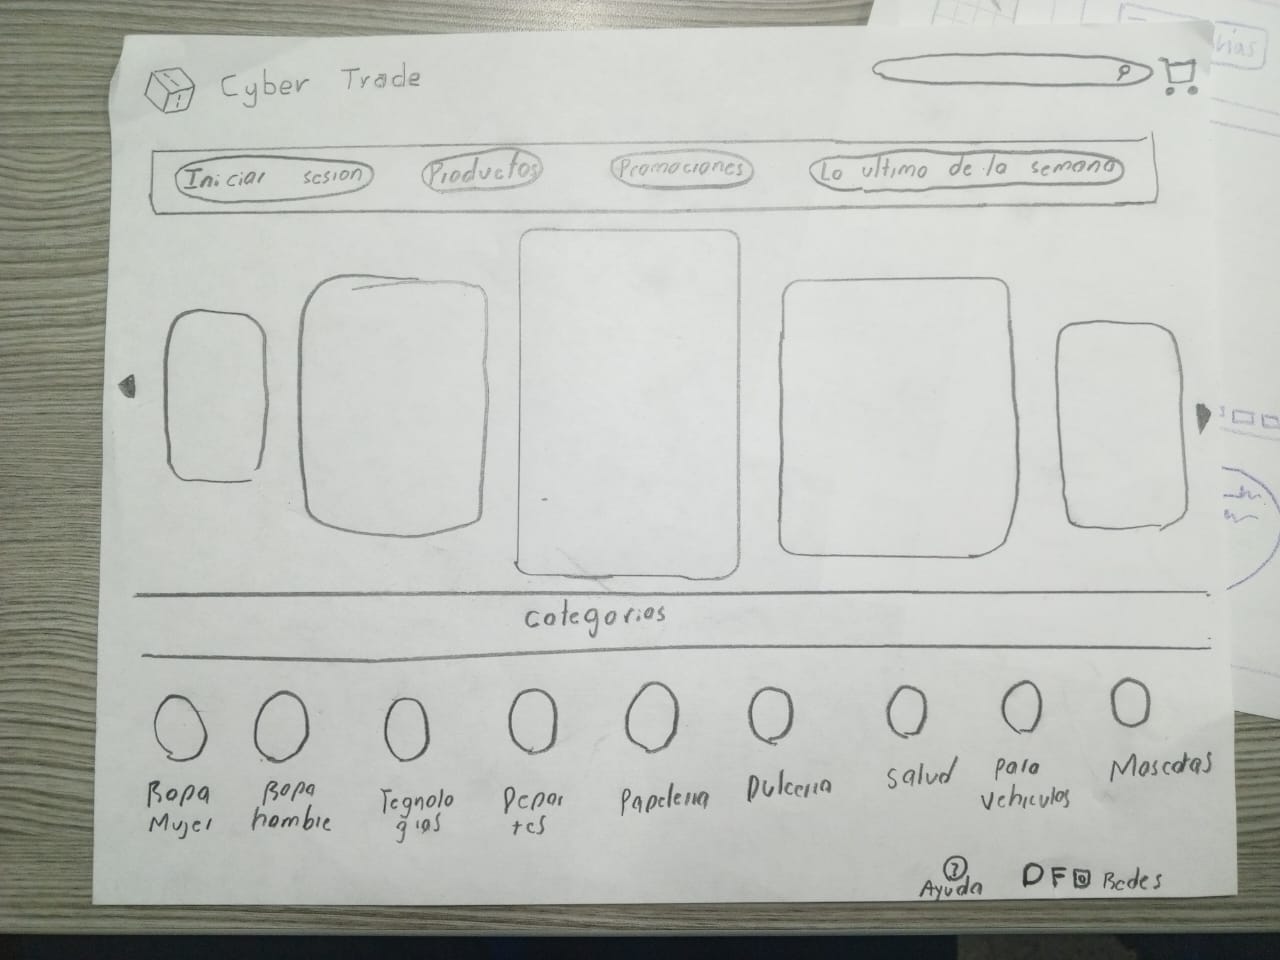 Cyber Trade
Iniciar sesion
Productos
Promociones
Lo ultimo de la semana
categorias
Ropa
Mujer
Ropa
hombre
Tegnolo
gias
Depor
tes
Papeleria
Dulceria
salud
para
vehiculos
Mascotas
?
Ayuda
D F Redes
rias